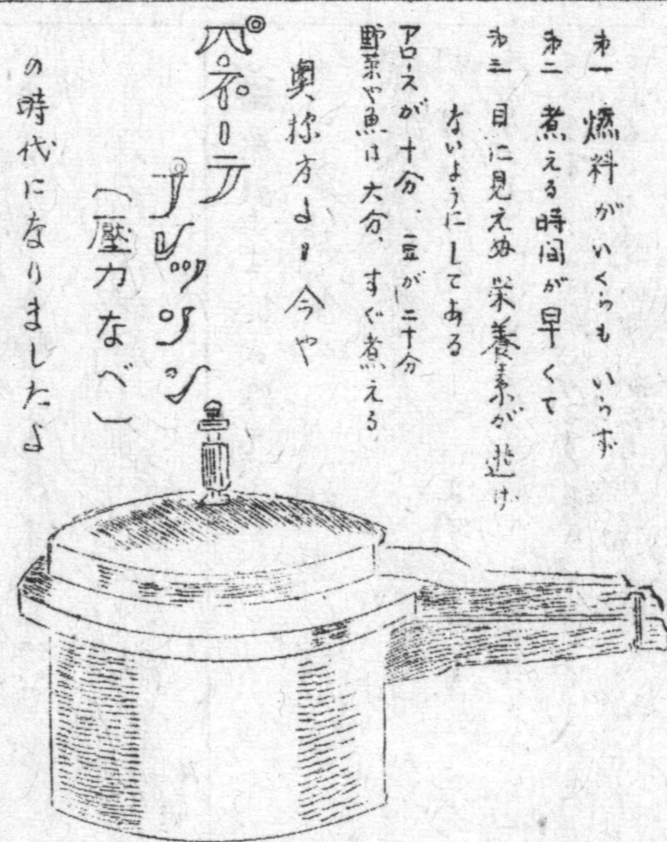 第一 燃料がいくらも いらず
第二 煮える時間が早くて
第三 目に見えぬ 栄養素が 逃げ
ないようにしてある
アロースが十分、豆が二十分
野菜や魚は大分、すぐ煮える
奥様方よ!! 今や
パネーラ
プレッソン
(壓力なべ)
の時代になりましたよ